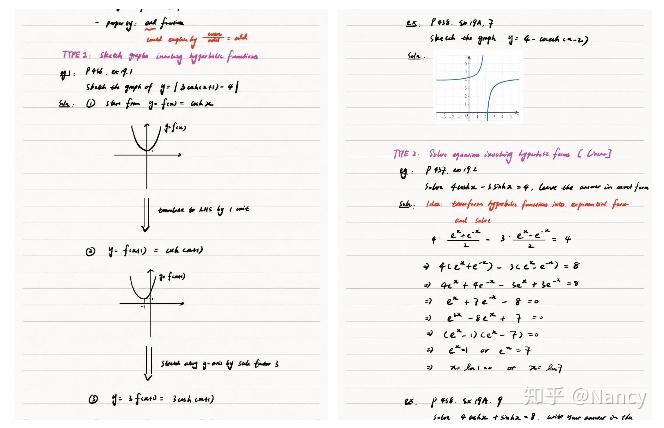 - property: odd function
could explain by even/odd = odd
TYPE 1: Sketch graphs involving hyperbolic functions
eg1: P436. ex 19.1
Sketch the graph of y = |3cosh(x+1) - 4|
Soln: (1) start from y = f(x) = coshx
y=f(x)
translate to LHS by 1 unit
② y = f(x+1) = cosh(x+1)
y=f(x+1)
-1
stretch along y-axis by scale factor 3
③ y = 3f(x+1) = 3cosh(x+1)
ex. P438. ex 19A. 7
sketch the graph y = 4 - coseh(x-2)
Soln.
TYPE 2. Solve equation involving hyperbolic func [Linear]
eg. P437. ex 19.2
Solve 4coshx - 3sinhx = 4, leave the answer in exact form
Soln. Idea: transform hyperbolic functions into exponential form
and solve
4 · (e^x + e^-x)/2 - 3 · (e^x - e^-x)/2 = 4
⇒ 4(e^x + e^-x) - 3(e^x - e^-x) = 8
⇒ 4e^x + 4e^-x - 3e^x + 3e^-x = 8
⇒ e^x + 7e^-x - 8 = 0
⇒ e^2x - 8e^x + 7 = 0
⇒ (e^x - 1)(e^x - 7) = 0
⇒ e^x = 1 or e^x = 7
⇒ x = ln1 = 0 or x = ln7
ex. P438. ex 19A. 9
Solve 4coshx + sinhx = 8. write your answer in the
知乎 @Nancy